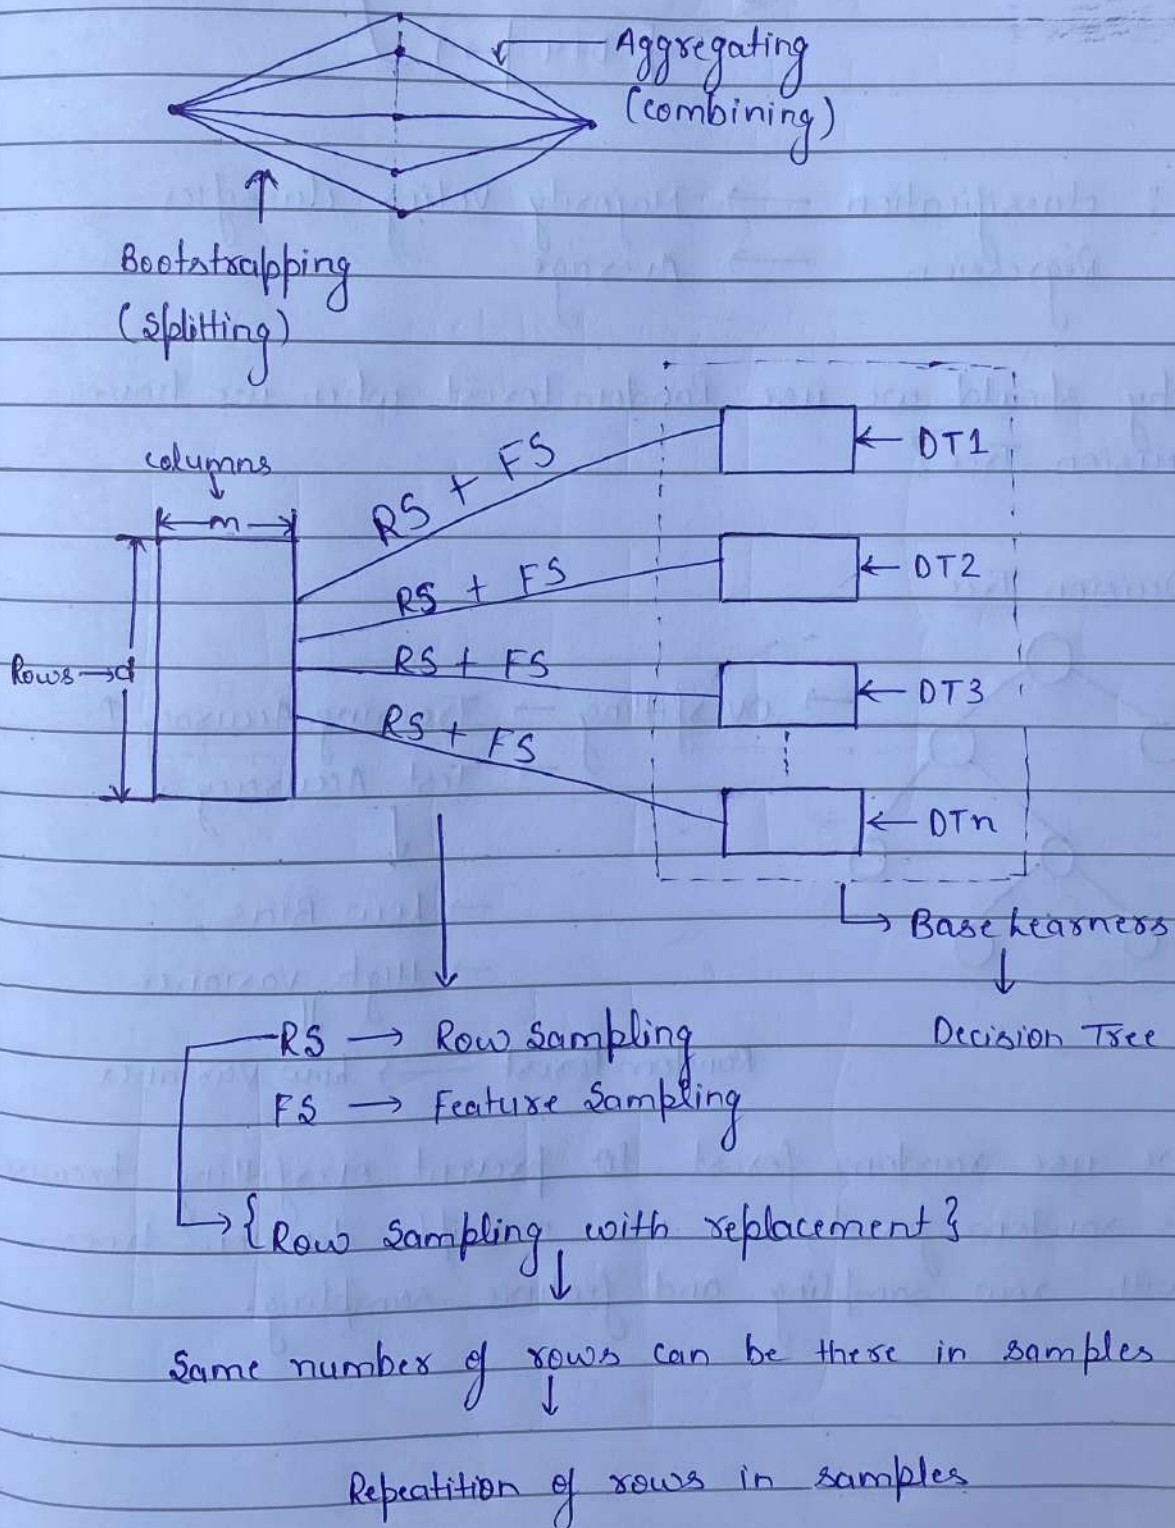 Aggregating
(combining)
Bootstrapping
(splitting)
columns
m
Rows → d
RS + FS
← DT1
RS + FS
← DT2
RS + FS
← DT3
RS + FS
← DTn
Base Learners
Decision Tree
RS → Row Sampling
FS → Feature Sampling
{Row Sampling with replacement}
Same number of rows can be there in samples
Repeatition of rows in samples